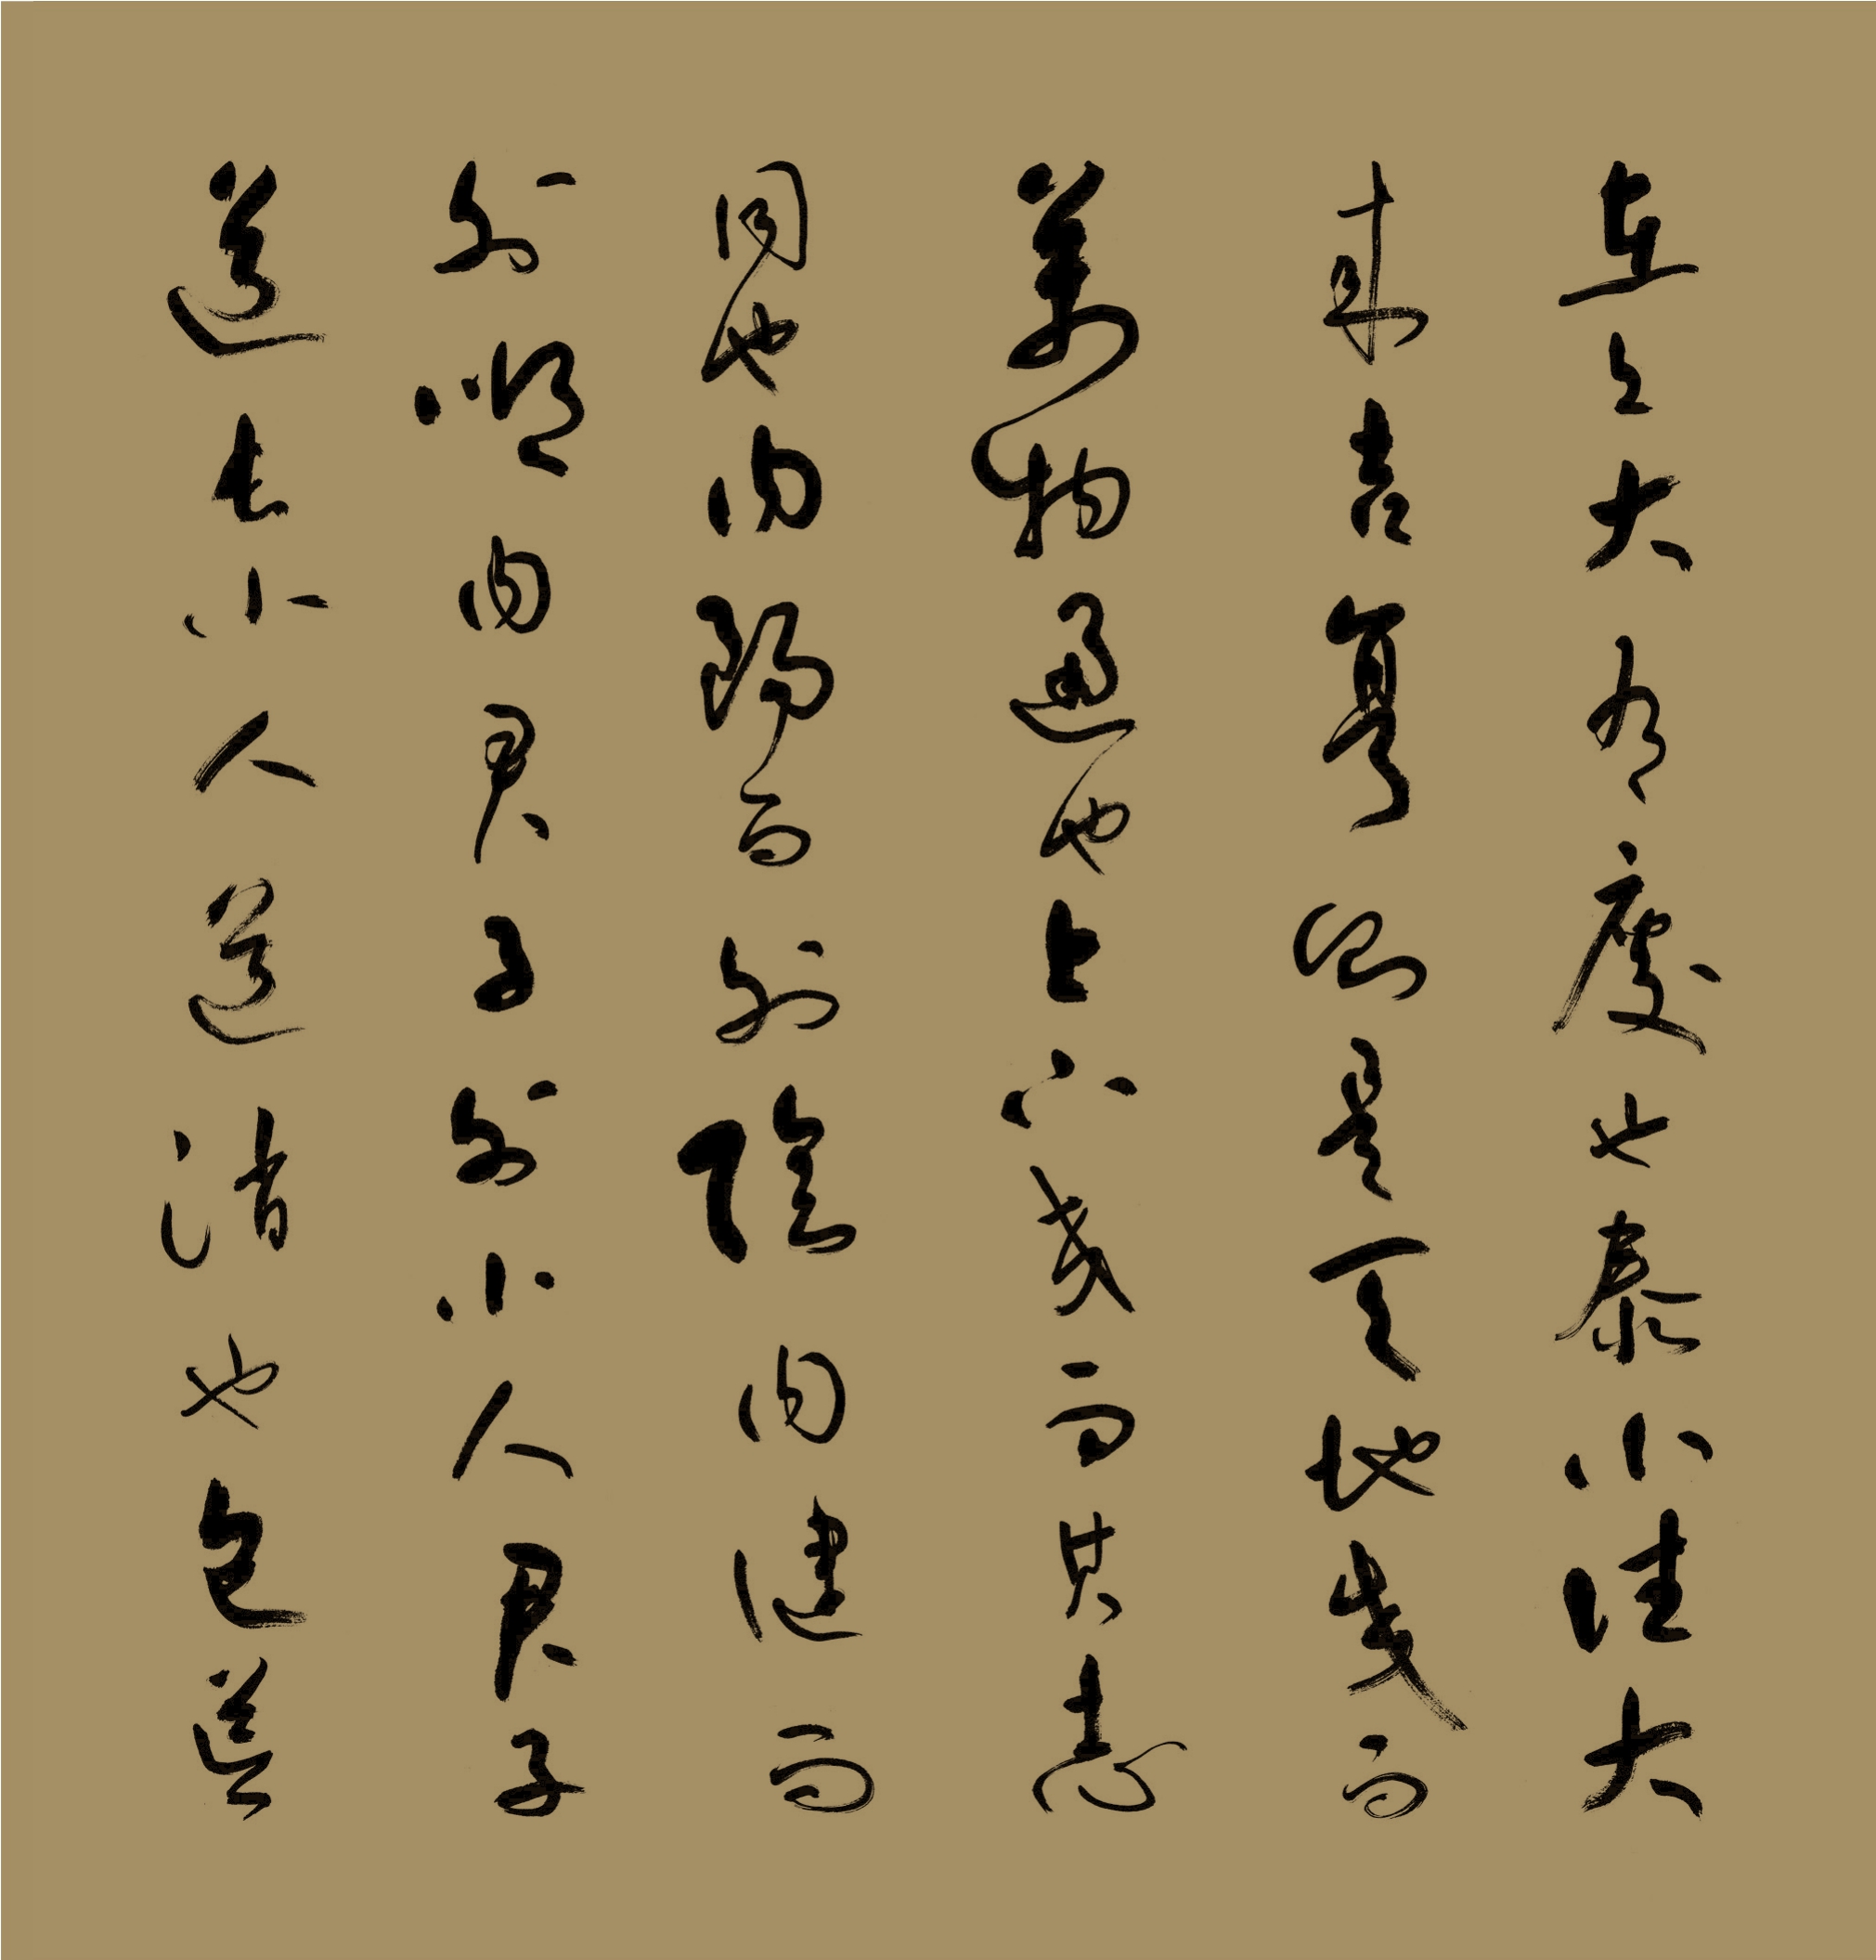 在上大有慶也泰小往大
來吉亨則是天地交而
萬物通也上下交而其志
同也內陽而外陰內健而
外順內君子外小人君子
道長小人道消也包荒